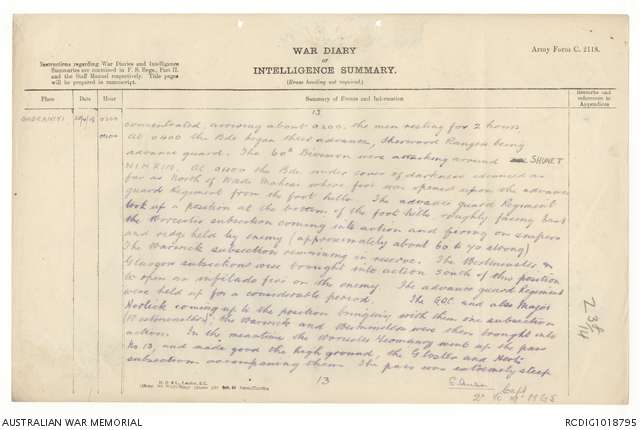 Army Form C. 2118.
WAR DIARY
or
INTELLIGENCE SUMMARY.
(Erase heading not required.)
Instructions regarding War Diaries and Intelligence
Summaries are contained in F. S. Regs., Part II.
and the Staff Manual respectively. Title pages
will be prepared in manuscript.
Place
Date
Hour
Summary of Events and Information
Remarks and
references to
Appendices
13
0200
concentrated, arriving about 0200. the men resting for 2 hours
0400
At 0400 the Bde began their advance, Sherwood Rangers being
advance guard. The 60th Division were attacking around SHUNET
NIMRIN. At 0400 the Bde under cover of darkness advanced as
far as North of Wadi where fire was opened upon the advance
guard Regiment from the foot hills. The advance guard Regiment
took up a position at the bottom of the foot hills roughly facing East
the Worcester subsection coming into action and firing on snipers
and ridge held by enemy (approximately about 60 to 70 strong)
The Warwick subsection remaining in reserve. The &
Glasgow subsections were brought into action South of this position
to open an enfilade fire on the enemy. The advance guard Regiment
were held up for a considerable period. The GOC and also Major
coming up to the position bringing with them one subsection
the Warwick and were then brought into
action. In the meantime the Worcester Yeomanry went up the pass
to 13, and made good the high ground, the Gloster and
subsection accompanying them. The pass was extremely steep
13
Capt
23/14
AUSTRALIAN WAR MEMORIAL
RCDIG1018795